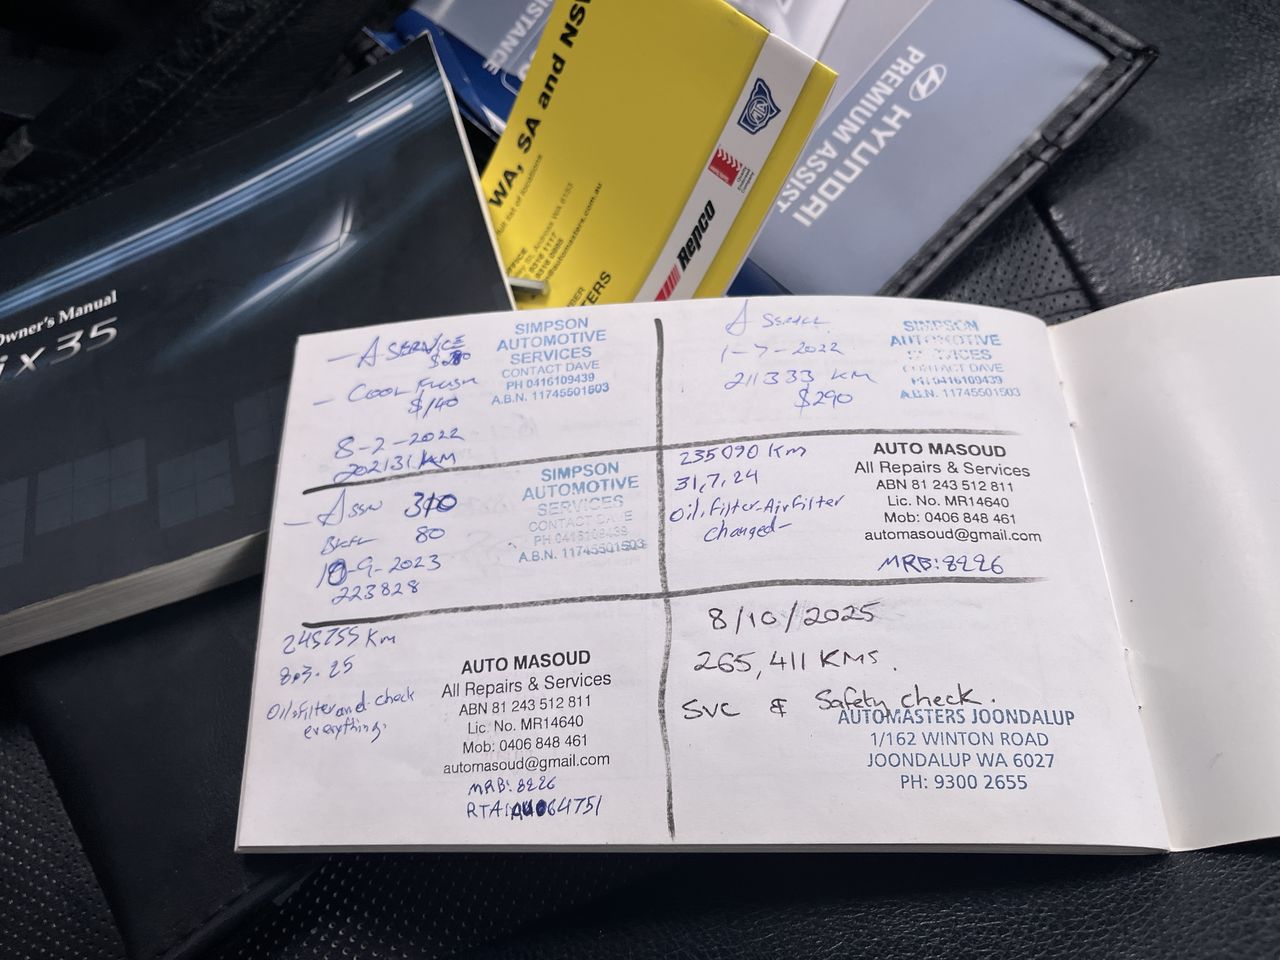 DISTANCE
WA, SA and NSW
full list of locations
MTA
Repco
HYUNDAI
PREMIUM ASSIST
Owner's Manual
ix35
- A SERVICE
- COOL FLUSH
$140
8-2-2022
202131 KM
SIMPSON
AUTOMOTIVE
SERVICES
CONTACT DAVE
PH 0416109439
A.B.N. 11745501503
A SERVICE
1-7-2022
211333 KM
$290
SIMPSON
AUTOMOTIVE
SERVICES
CONTACT DAVE
PH 0416109439
A.B.N. 11745501503
310
80
-9-2023
223828
SIMPSON
AUTOMOTIVE
SERVICES
CONTACT DAVE
PH 0416109439
A.B.N. 11745501503
235090 Km
31,7,24
Oil,Filter-AirFilter
changed-
AUTO MASOUD
All Repairs & Services
ABN 81 243 512 811
Lic. No. MR14640
Mob: 0406 848 461
automasoud@gmail.com
MRB:8226
245755 Km
8.3.25
Oil,Filter and check
everything.
AUTO MASOUD
All Repairs & Services
ABN 81 243 512 811
Lic. No. MR14640
Mob: 0406 848 461
automasoud@gmail.com
MRB:8226
8/10/2025
265,411 KMS.
SVC & Safety check.
AUTOMASTERS JOONDALUP
1/162 WINTON ROAD
JOONDALUP WA 6027
PH: 9300 2655